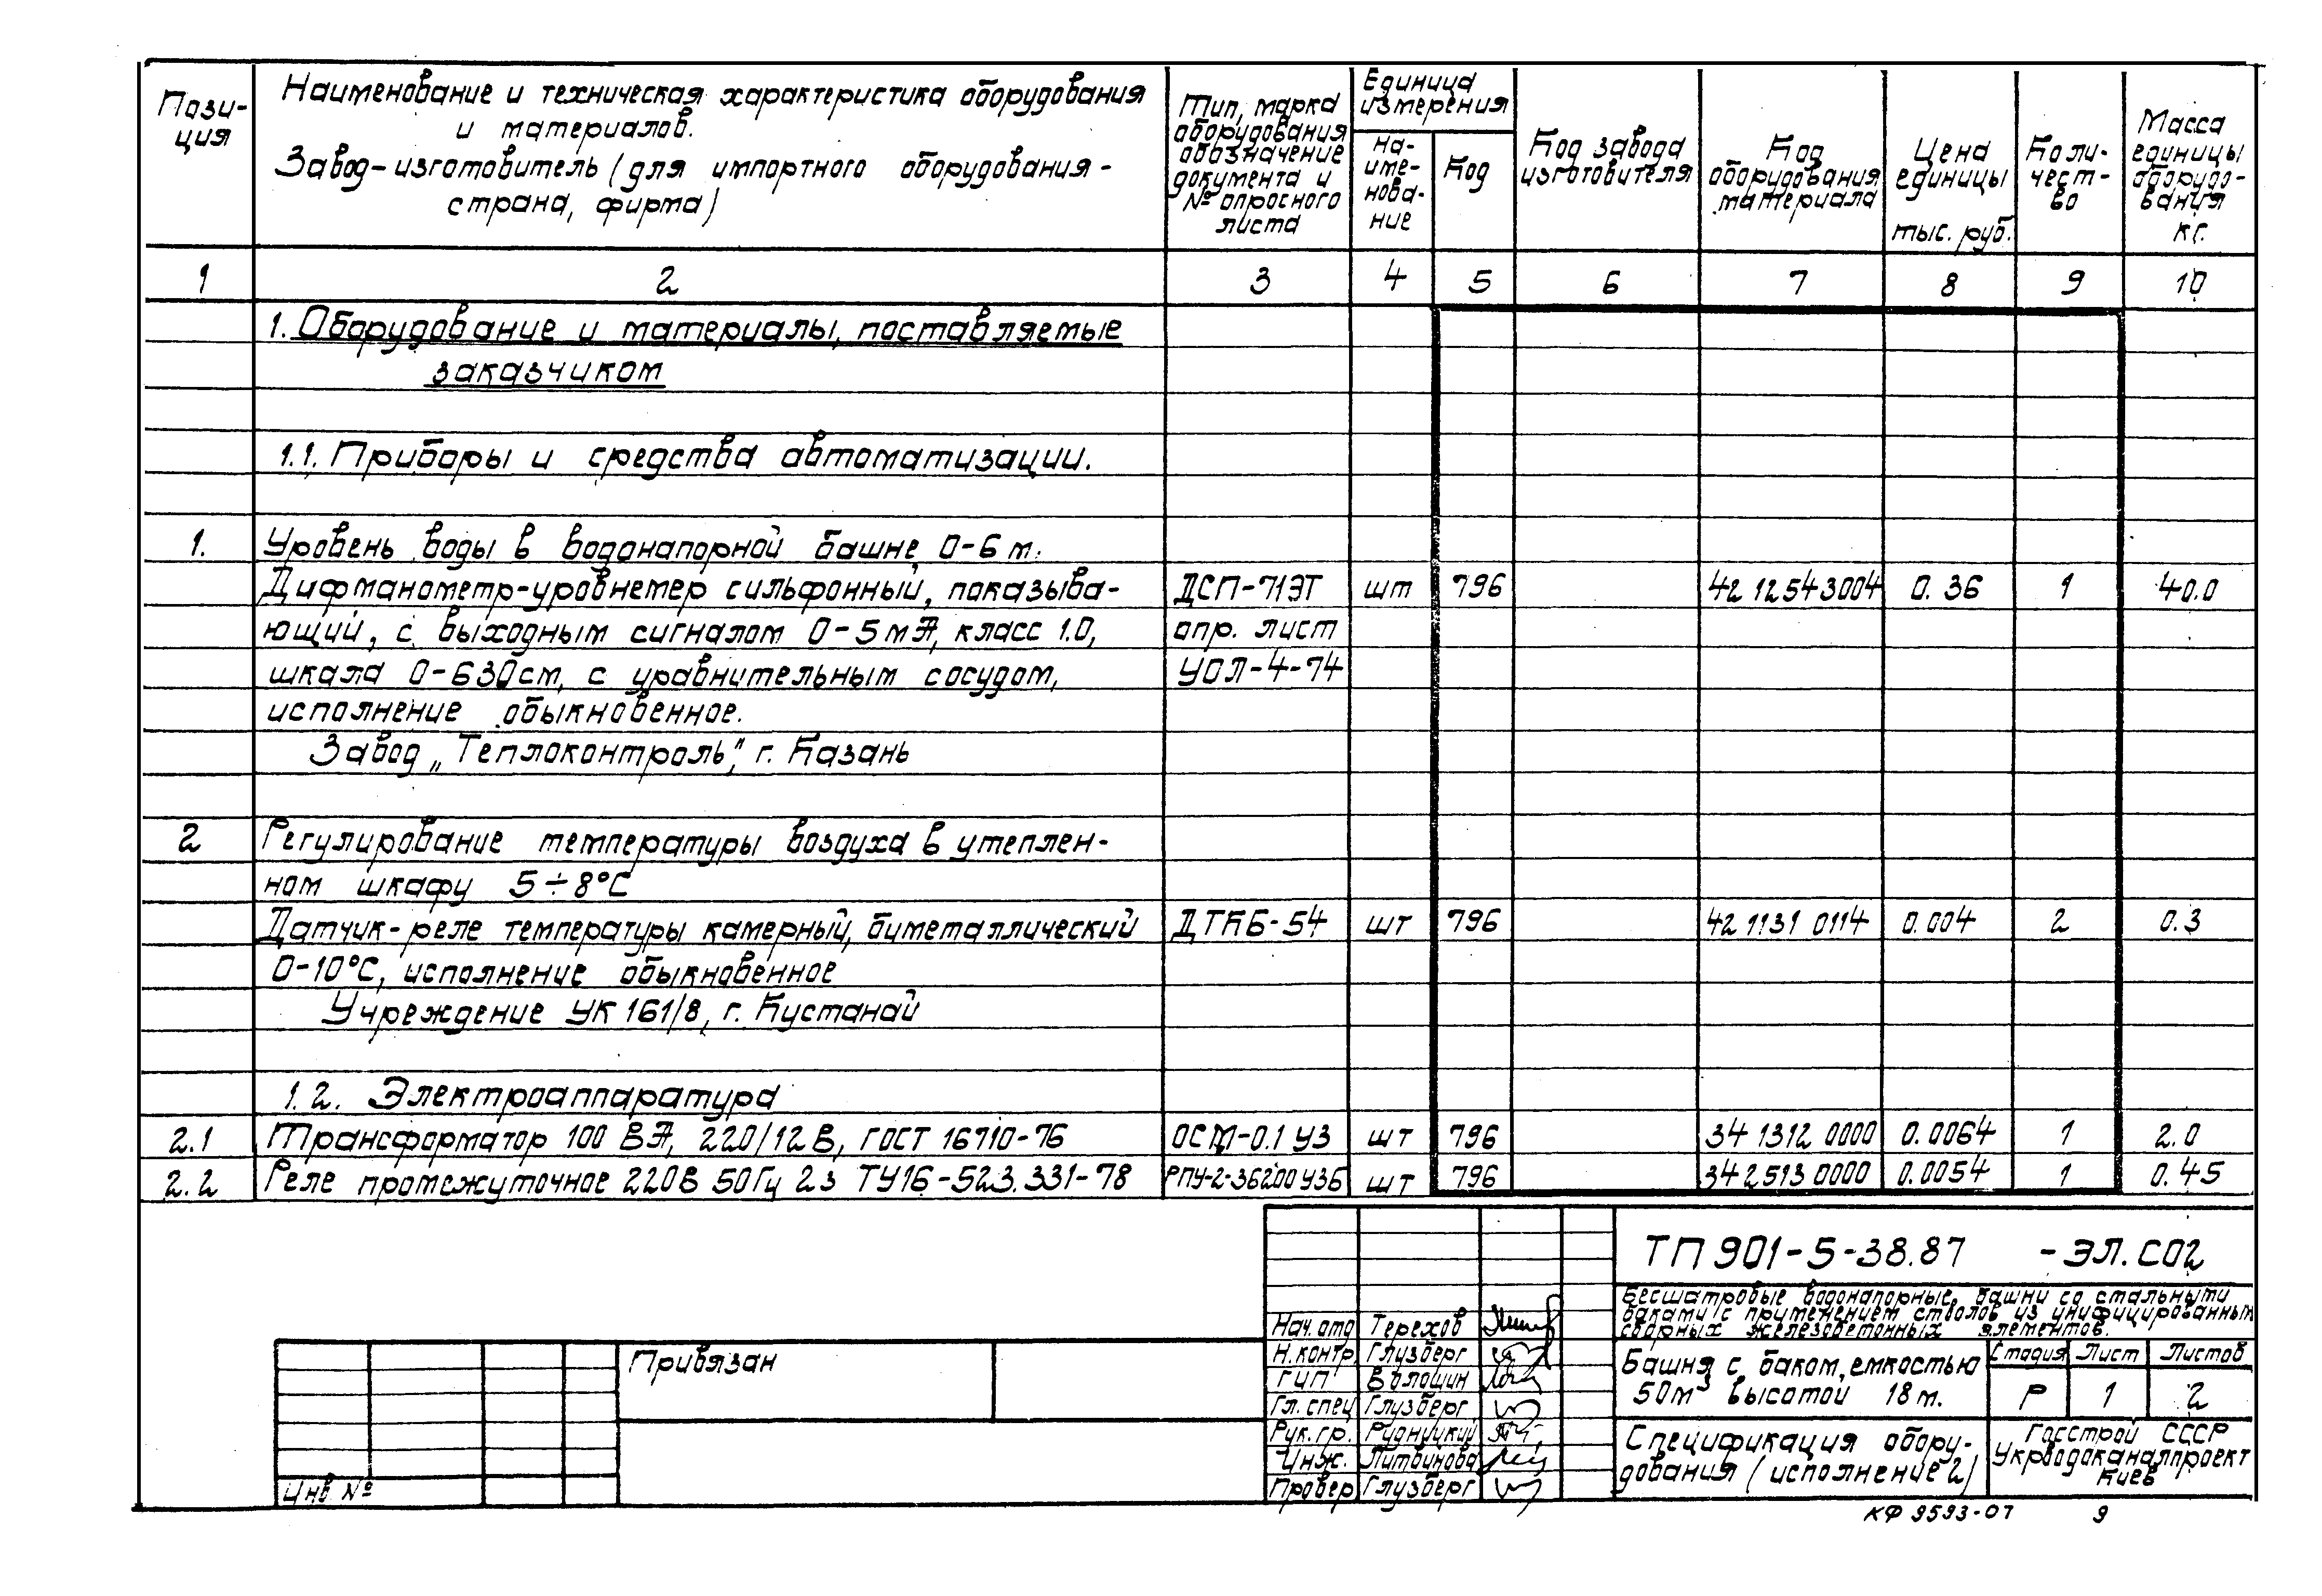 Пози-
ция
Наименование и техническая характеристика оборудования
и материалов.
Завод-изготовитель (для импортного оборудования-
страна, фирма)
Тип, марка
оборудования
обозначение
документа и
№ опросного
листа
Единица
измерения
На-
име-
нова-
ние
Код
Код завода
изготовителя
Код
оборудования
материала
Цена
единицы
тыс. руб.
Коли-
чест-
во
Масса
единицы
оборудо-
вания
кг.
1 2 3 4 5 6 7 8 9 10
1. Оборудование и материалы, поставляемые
заказчиком
1.1. Приборы и средства автоматизации.
1. Уровень воды в водонапорной башне 0-6 м.
Дифманометр-уровнемер сильфонный, показыва- ДСП-71ЭТ шт 796 42 12543004 0.36 1 40.0
ющий, с выходным сигналом 0-5 мА, класс 1.0, опр. лист
шкала 0-630 см, с уравнительным сосудом, УОЛ-4-74
исполнение обыкновенное.
Завод „Теплоконтроль", г. Казань
2 Регулирование температуры воздуха в утеплен-
ном шкафу 5÷8°С
Датчик-реле температуры камерный, биметаллический ДТКБ-54 шт 796 42 1131 0114 0.004 2 0.3
0-10°С, исполнение обыкновенное
Учреждение УК 161/8, г. Кустанай
1.2. Электроаппаратура
2.1 Трансформатор 100 ВА, 220/12 В, ГОСТ 16710-76 ОСМ-0.1 У3 шт 796 34 1312 0000 0.0064 1 2.0
2.2 Реле промежуточное 220В 50Гц 2з ТУ16-523.331-78 РПУ-2-36200 У3Б шт 796 34 2513 0000 0.0054 1 0.45
ТП 901-5-38.87 -ЭЛ.СО2
Бесшатровые водонапорные башни со стальными
баками с применением стволов из унифицированных
сборных железобетонных элементов.
Нач. отд Терехов
Н.контр. Глузберг
ГИП Волошин
Гл. спец Глузберг
Рук. гр. Рудницкий
Инж. Литвинова
Провер Глузберг
Башня с баком, емкостью
50м³ высотой 18 м.
Стадия Лист Листов
Р 1 2
Спецификация обору-
дования (исполнение 2)
Госстрой СССР
Укрводоканалпроект
Киев
Привязан
Инв №
КФ 9593-07 9